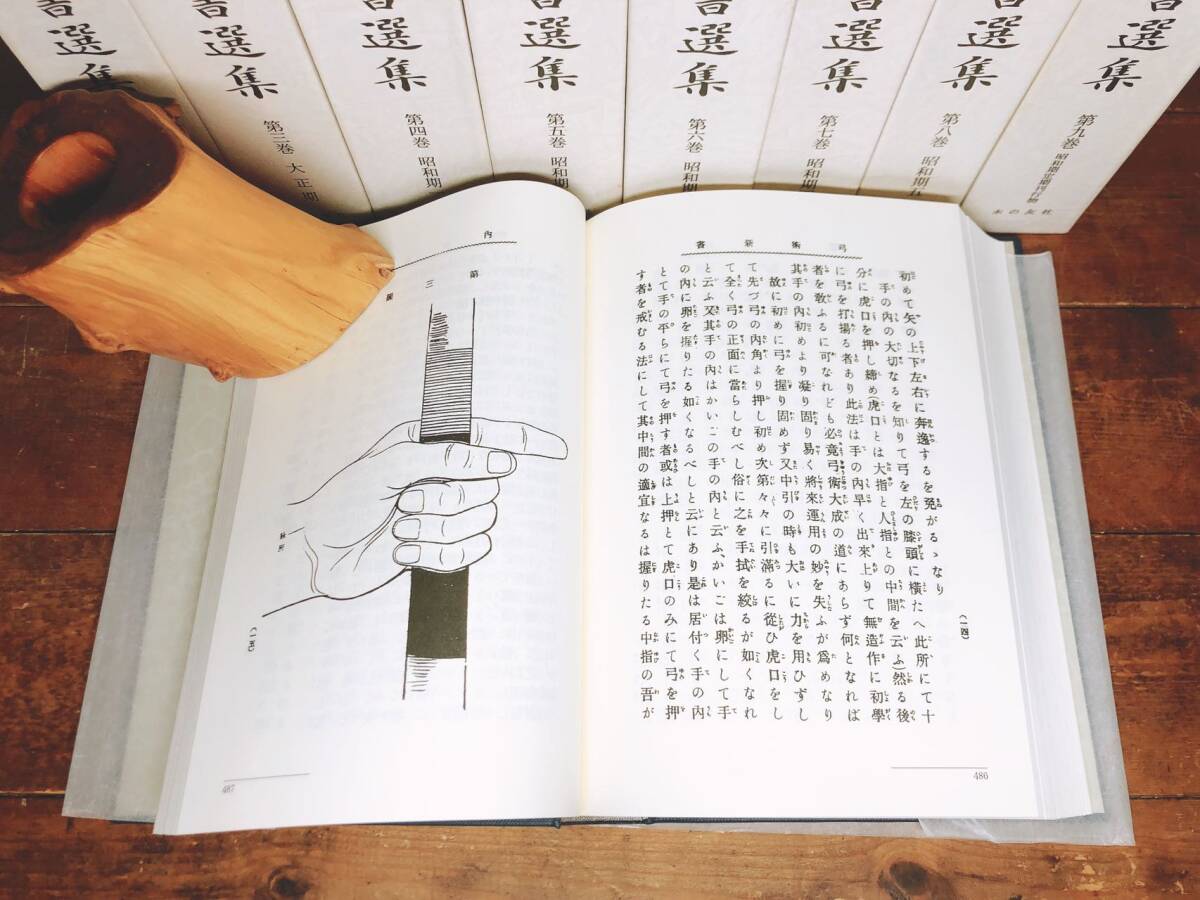 書選集
書選集
第三巻 大正期
書選集
第四巻 昭和期
書選集
第五巻 昭和期
書選集
第六巻 昭和期
書選集
第七巻 昭和期
書選集
第八巻 昭和期五
書選集
第九巻 昭和期定期刊行物
本の友社
弓術新書
初めて矢の上下左右に奔逸するを発がるゝなり
手の内の大切なるを知りて弓を左の膝頭に横たへ此所にて十
分に虎口を押し締め(虎口とは大指と人指との中間を云ふ)然る後
に弓を打揚る者あり此法は手の内早く出來上りて無造作に初學
者を敢ふるに可なれども必竟弓術大成の道にあらず何となれば
其手の内初めより凝り固り易く將來運用の妙を失ふが爲めなり
故に初めに弓を握り固めず又中引の時も大いに力を用ひずし
て先づ弓の内角より押し初め次第々々に引滿るに從ひ虎口をし
て全く弓の正面に當らしむべし俗に之を手拭を絞るが如くなれ
と云ふ又其手の内はかいごの手の内と云ふ、かいごは卵にして手
の内に卵を握りたる如くなるべしと云にあり是は居付く手の内
とて手の平らにて弓を押す者或は上押とて虎口のみにて弓を押
す者を戒むる法にして其中間の適宜なるは握りたる中指の吾が
(一四)
486
内
第三圖
(一五)
487